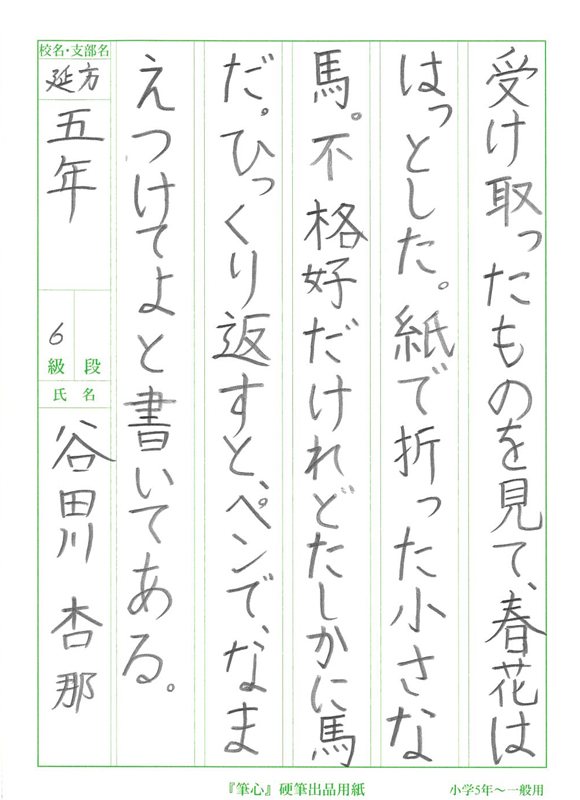 受け取ったものを見て、春花は
はっとした。紙で折った小さな
馬。不格好だけれどたしかに馬
だ。ひっくり返すと、ペンで、なま
えつけてよと書いてある。
校名・支部名
延方
五年
6
級 段
氏 名
谷田川 杏那
『筆心』硬筆出品用紙
小学5年～一般用